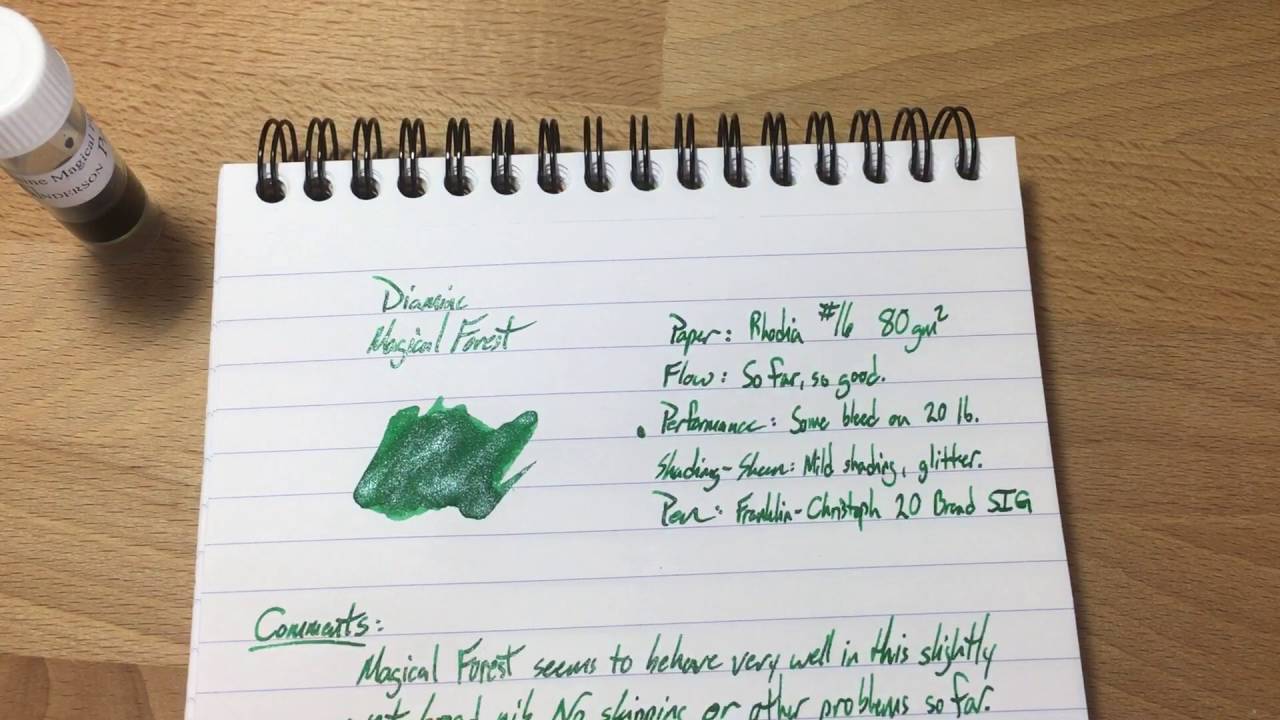 ne Magical F
NDERSON P
Diamine
Magical Forest
Paper: Rhodia #16 80 gm²
Flow: So far, so good.
Performance: Some bleed on 20 lb.
Shading-Sheen: Mild shading, glitter.
Pen: Franklin-Christoph 20 Broad SIG
Comments:
Magical Forest seems to behave very well in this slightly
wet broad nib. No skipping or other problems so far.